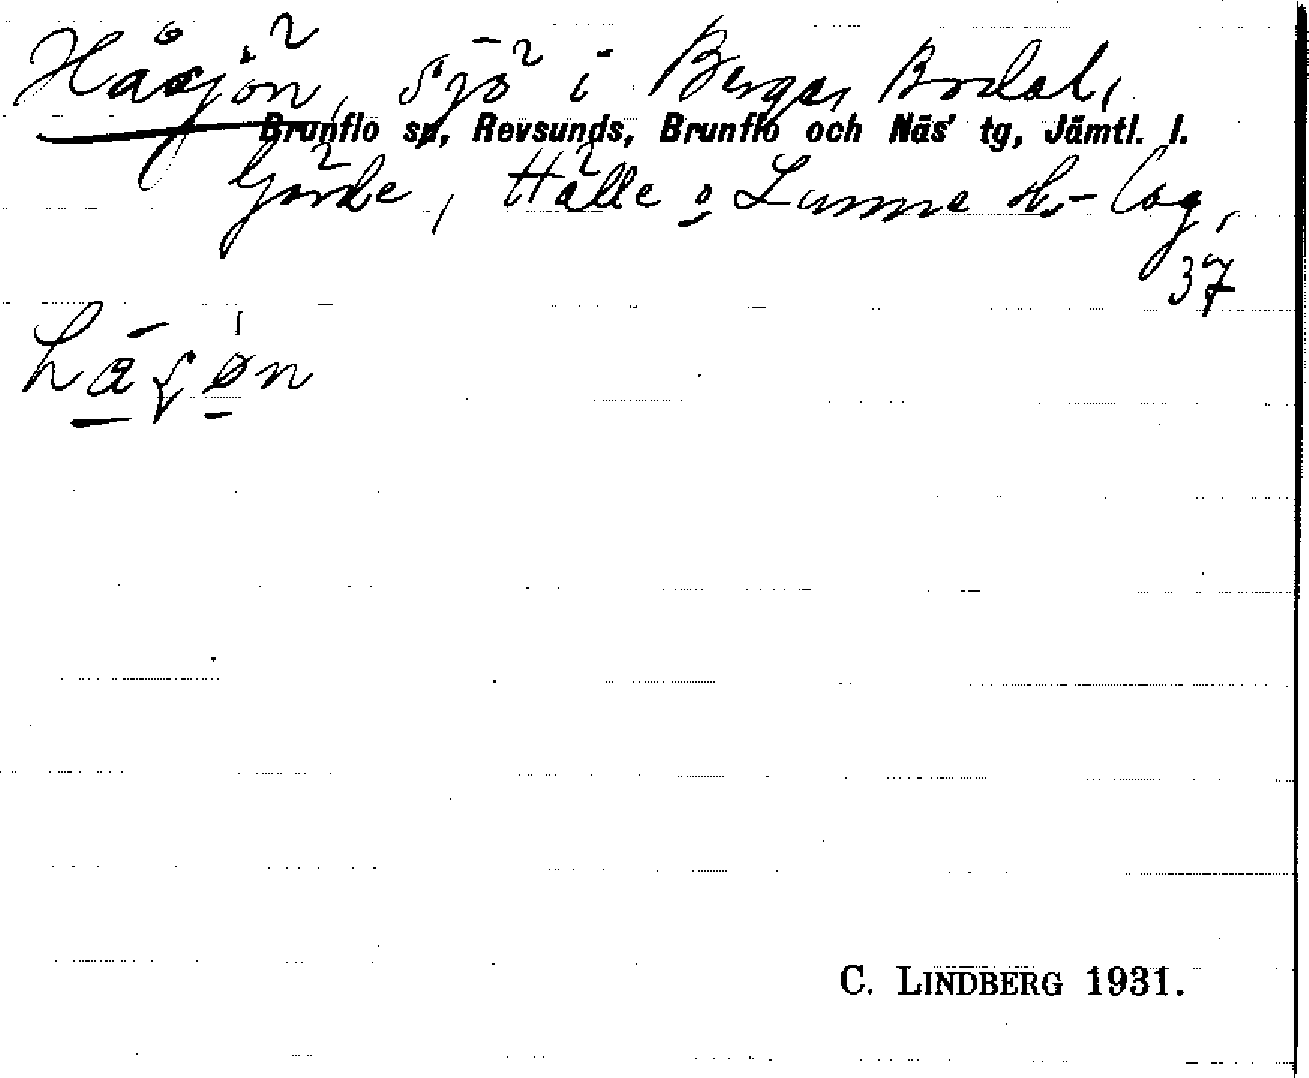 Håsjön, sjö i Berge, Bodal,
Brunflo sn, Revsunds, Brunflo och Näs' tg, Jämtl. l.
Gärde, Hälle o Lunne sk-lag,
37
C. LINDBERG 1931.